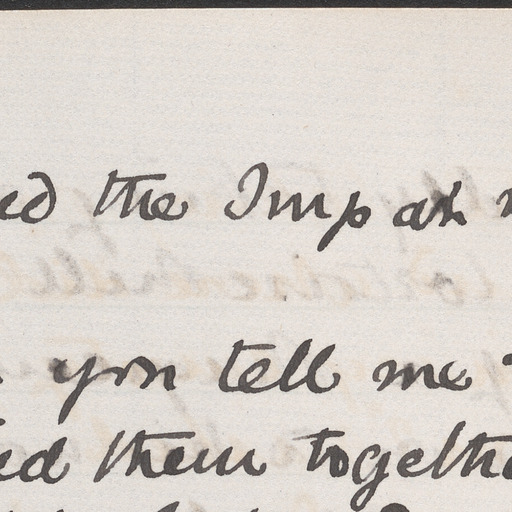 ed the Imp at
you tell me
ed them togethe